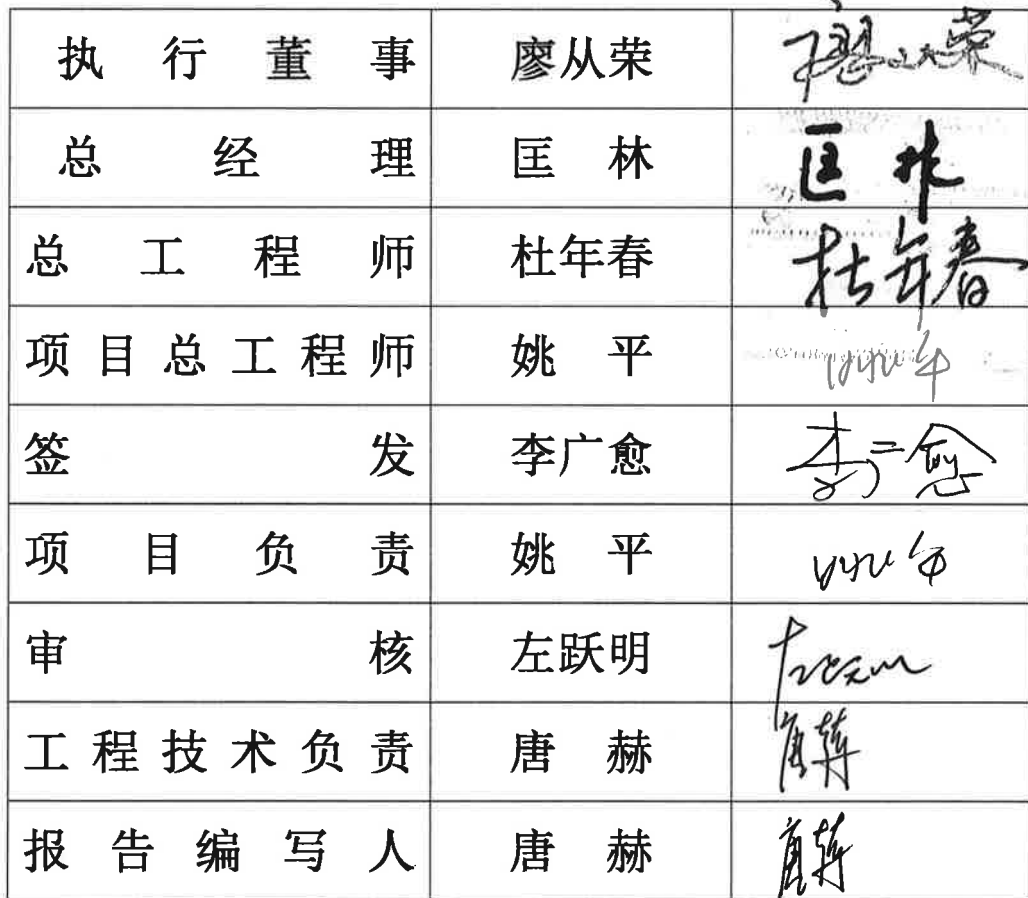 执行董事 廖从荣 廖从荣
总经理 匡林 匡林
总工程师 杜年春 杜年春
项目总工程师 姚平
签发 李广愈 李广愈
项目负责 姚平
审核 左跃明
工程技术负责 唐赫 唐赫
报告编写人 唐赫 唐赫